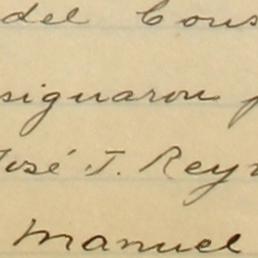 del Cons
signaron p
José T. Rey
Manuel